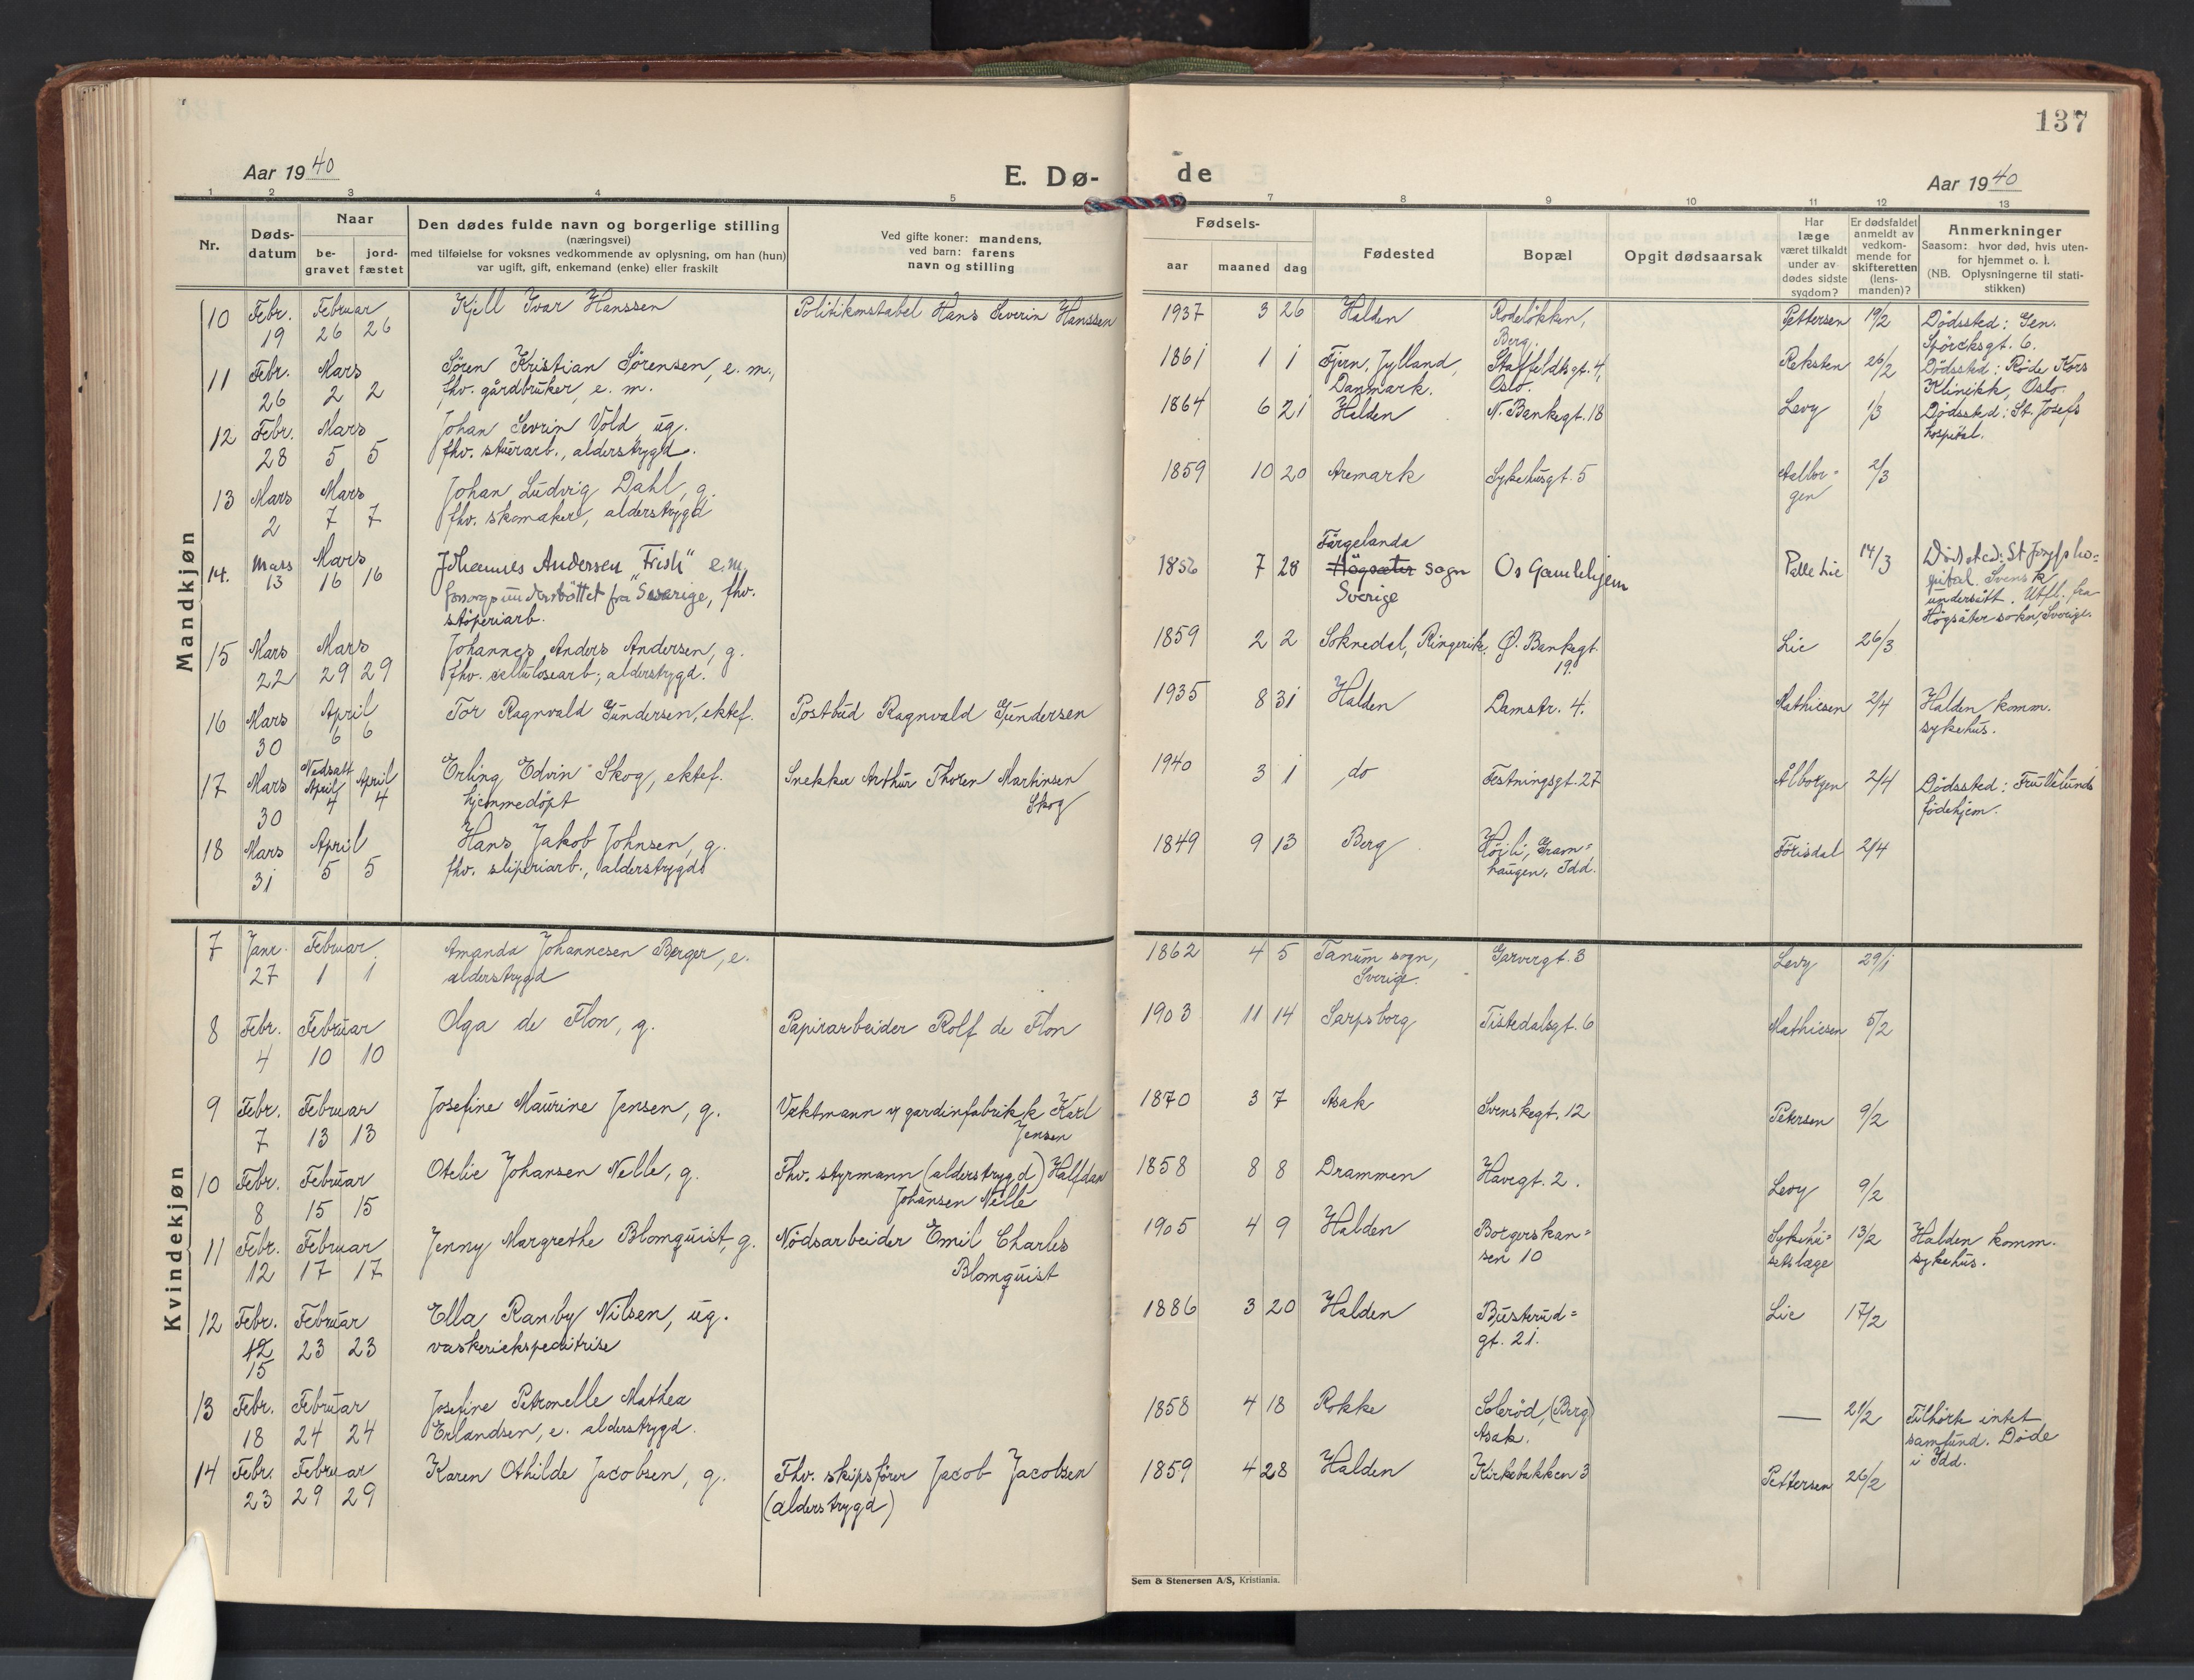 137
Aar 1940
E. Dø-
de
Aar 1940
1 2 3 4 5 6 7 8 9 10 11 12 13
Nr.
Døds-
datum
Naar
be-
gravet
jord-
fæstet
Den dødes fulde navn og borgerlige stilling
(næringsvei)
med tilføielse for voksnes vedkommende av oplysning, om han (hun)
var ugift, gift, enkemand (enke) eller fraskilt
Ved gifte koner: mandens,
ved barn: farens
navn og stilling
Fødsels-
aar maaned dag
Fødested
Bopæl
Opgit dødsaarsak
Har
læge
været tilkaldt
under av-
dødes sidste
sygdom?
Er dødsfaldet
anmeldt av
vedkom-
mende for
skifteretten
(lens-
manden)?
Anmerkninger
Saasom: hvor død, hvis uten-
for hjemmet o. l.
(NB. Oplysningerne til stati-
stikken)
Mandkjøn
10 Febr. Februar Kjell Ivar Hanssen Politikonstabel Hans Severin Hanssen 1937 3 26 Halden Rodeløkken, Pettersen 19/2 Dødssted: Gen.
19 26 26 Berg. Spörcksgt. 6.
11 Febr. Mars Søren Kristian Sørensen, e. m., 1861 1 1 Fjern, Jylland, Staffeldtsgt. 4, Reksten 26/2 Dødssted: Røde Kors
26 2 2 fhv. gårdbruker, e. m. Danmark. Oslo. Klinikk, Oslo.
12 Febr. Mars Johan Sevrin Vold, ug. 1864 6 21 Halden N. Bankegt. 18 Levy 1/3 Dødssted: St. Josefs
28 5 5 fhv. stuerarb., alderstrygd. hospital.
13 Mars Mars Johan Ludvig Dahl, g. 1859 10 20 Aremark Sykehusgt. 5 Aalbor= 2/3
2 7 7 fhv. skomaker, alderstrygd gen
14. Mars Mars Johannes Andersen "Frish" e.m. 1856 7 28 Färgelanda Högsäter sogn Os Gamlehjem Palle Lie 14/3 Dödsted: St Josefs ho=
13 16 16 forsorgsunderstöttet fra Sverige, fhv. Sverige spital. Svensk
støperiarb. undersått. Utfl. fra
Högsäter sokn, Sverige.
15 Mars Mars Johannes Anders Andersen, g. 1859 2 2 Soknedal, Ringerike. Ø. Bankegt. Lie 26/3
22 29 29 fhv. cellulosearb., alderstrygd. 19.
16 Mars April Tor Ragnvald Gundersen, ektef. Postbud Ragnvald Gundersen 1935 8 31 Halden Damstr. 4. Mathiesen 2/4 Halden komm.
30 6 6 sykehus.
17 Mars Nedsatt April April Erling Edvin Skog, ektef. Snekker Arthur Thoren Martinsen 1940 3 1 do Festningsgt. 27 Ålborgen 2/4 Dødssted: Fru Lielunds
30 4 4 hjemmedöpt Skog fødehjem.
18 Mars April Hans Jakob Johnsen, g. 1849 9 13 Berg Høili, Gram= Forisdal 2/4
31 5 5 fhv. sliperiarb., alderstrygd haugen, Idd.
Kvindekjøn
7 Janr. Februar Amanda Johannesen Berger, e. 1862 4 5 Tanum sogn, Garvergt. 3 Levy 29/1
27 1 1 alderstrygd Sverige.
8 Febr. Februar Olga de Flon, g. Papirarbeider Rolf de Flon 1903 11 14 Sarpsborg Tistedalsgt. 6 Mathiesen 5/2
4 10 10
9 Febr. Februar Josefine Maurine Jensen, g. Vaktmann v/ gardinfabrikk Karl 1870 3 7 Asak Svenskegt. 12 Petersen 9/2
7 13 13 Jensen
10 Febr. Februar Otelie Johansen Nelle, g. Fhv. styrmann (alderstrygd) Halfdan 1858 8 8 Drammen Havegt. 2. Levy 9/2
8 15 15 Johansen Nelle
11 Febr. Februar Jenny Margrethe Blomquist, g. Nødsarbeider Emil Charles 1905 4 9 Halden Borgerskan= Sykehu= 13/2 Halden komm.
12 17 17 Blomquist sen 10 setslæge sykehus.
12 Febr. Februar Ella Ranby Nilsen, ug. 1886 3 20 Halden Busterud= Lie 17/2
12 23 23 vaskeriekspeditrise gt. 21.
15
13 Febr. Februar Josefine Petronelle Mathea 1858 4 18 Rokke Solerød, (Berg) — 21/2 Tilhørte intet
18 24 24 Erlandsen, e. alderstrygd. Asak. samfund. Døde
i Idd.
14 Febr. Februar Karen Othilde Jacobsen, g. Fhv. skipsfører Jacob Jacobsen 1859 4 28 Halden Kirkebakken 3 Pettersen 26/2
23 29 29 (alderstrygd)
Sem & Stenersen A/S, Kristiania.